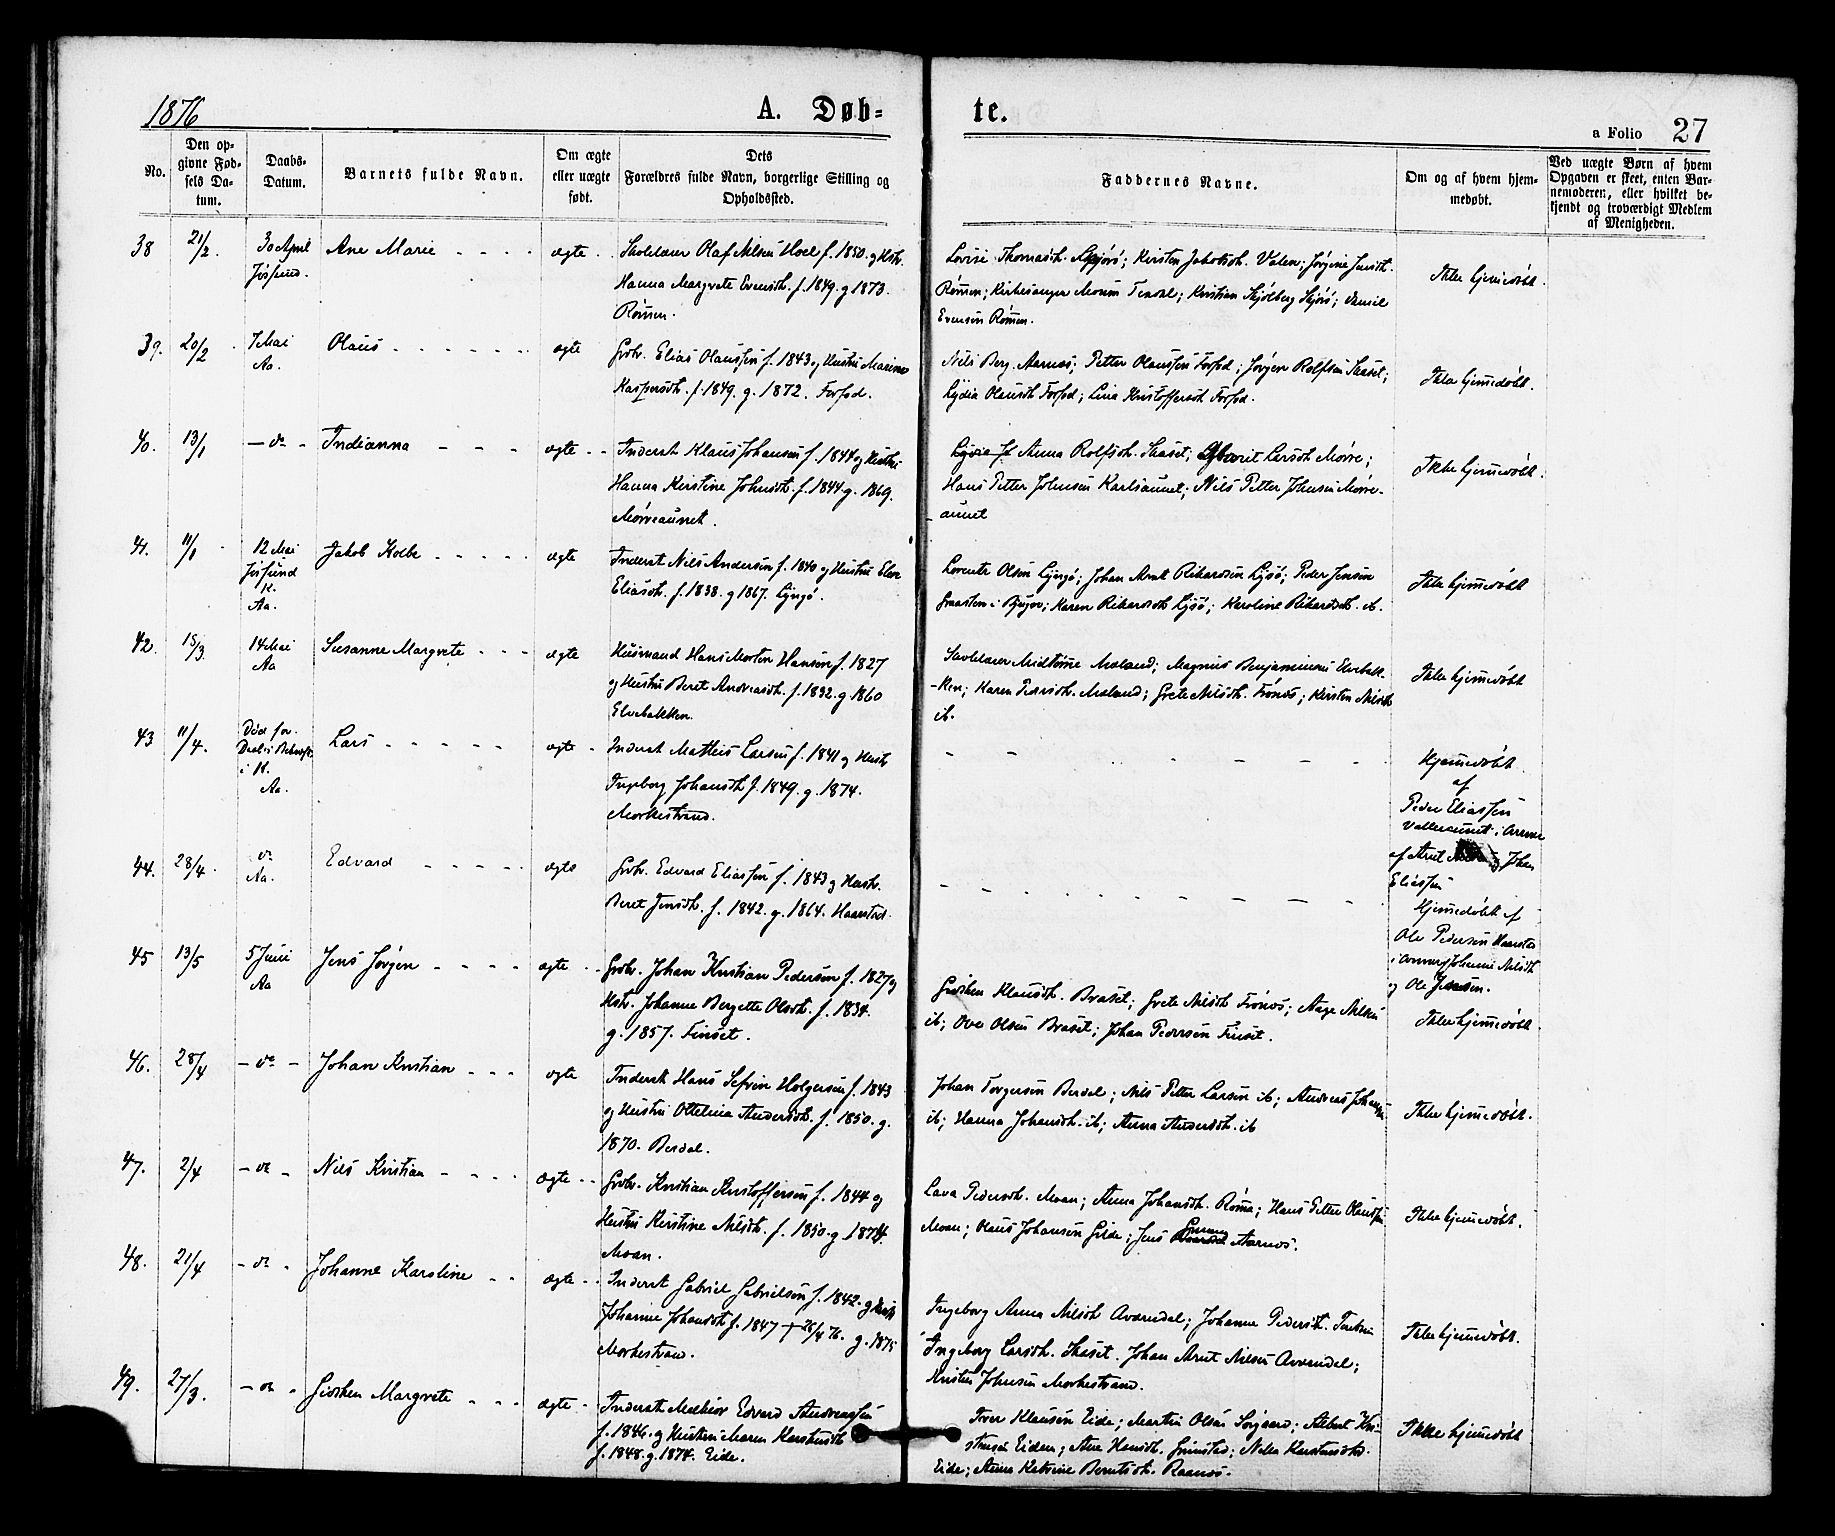 1876
A. Døb-
te.
a Folio 27
No.
Den op-
givne Fød-
sels Da-
tum.
Daabs-
Datum.
Barnets fulde Navn.
Om ægte
eller uægte
født.
Dets
Forældres fulde Navn, borgerlige Stilling og
Opholdssted.
Faddernes Navne.
Om og af hvem hjem-
medøbt.
Ved uægte Børn af hvem
Opgaven er skeet, enten Bar-
nemoderen, eller hvilket be-
kjendt og troværdigt Medlem
af Menigheden.
38 21/2. 30 April Ane Marie - - - - ægte - Skolelærer Olaf Nilsen Hoel f. 1850. og Hstr.
Jøsund. Hanna Margrete Evensdt. f. 1849. g 1873.
Rømen.
Lovise Thomasdt. ; Kirsten Jakobsdt. Valen; Jørgine Jensdt.
Rømen; Kirkesanger Morum Teodal; Kristian Skjølberg ; Daniel
Evensen Rømen.
Ikke hjemmedøbt.
39. 20/2 7 Mai Olaus - - - - - - ægte Grbr. Elias Olaussen f. 1843 og Hustru Marine
Aa. Kaspersdt. f. 1849. g. 1872. Forfod.
Nils Berg. Aarnes; Petter Olaussen Forfod; Jørgen Rolfsen Skaset;
Lydia Olausdt Forfod; Lina Kristoffersdt Forfod.
Ikke hjemmedøbt.
40. 13/1 - do - Indianna - - - - ægte - - Inderst Klaus Johansen f. 1844 og Hustru
Hanna Kerstine Johnsdt. f. 1844 g. 1869.
Mørreaunet.
Anna Rolfsdt. Skaset; Larsdt Mørre;
Hans Petter Johnsen Karlsaunet; Nils Petter Johnsen Mørre-
aunet
Ikke hjemmedøbt.
41. 11/1 12 Mai Jakob Kolbe - - - - - ægte Inderst Nils Andersen f. 1840 og Hustru Elen
Jøssund Eliasdt. f. 1838. g 1867. Lyngø.
K.
Aa.
Lorents Olsen Lyngø; Johan Arnt Rikardsen Lysø; Peder Jensen
i ; Karen Rikardsdt Lysø; Karoline Rikardsdt. ib.
Ikke hjemmedøbt
42. 15/3. 14 Mai Susanne Margrete - - - ægte Husmand Hans Morten Hansen f. 1827
Aa og Hustru Beret Andreasdt. f. 1832. g 1860
Elvebakken.
Skolelærer Midtømme Moland; Magnus Benjaminsen Elvebak-
-ken; Karen Pedersdt. Moland; Grete Nilsdt. Frønes; Kirsten Nilsdt
ib.
Ikke hjemmedøbt
43 11/4. Død før Lars - - - - - ægte - Inderst Mathias Larsen f. 1841 og Hustr
Daab
i K. Ingeborg Johansdt f. 1849. g. 1874.
Aa. Morkestrand.
Hjemmedøbt
af
Peder Eliassen
Valleraunet i
af Arnt og Johan
Eliassen
44. 28/4. do Edvard - - - - - ægte Grbr. Edvard Eliassen f. 1843 og Hustr.
Aa. Beret Jensdt. f. 1842. g. 1864. Haarstad.
Hjemmedøbt af
Ole Pedersen Haarstad
i Johanne Nilsdt
og Ole Jensen.
45 13/5 5 Juni Jens Jørgen - - - - ægte - - Grbr. Johan Kristian Pedersen f. 1827 og
Aa Hstr. Johanne Bergette Olsdt. f. 1834.
g. 1857. Finset.
Gjertken Klausdt. Braset; Grete Nilsdt Frønes; Aage Nilsen
ib; Ove Olsen Braset; Johan Pedersen Finset.
Ikke hjemmedøbt.
46. 28/4 - do - Johan Kristian - - - ægte Inderst Hans Sefrin Holgersen f. 1843
og Hustru Ottelina Andersdt. f. 1850. g.
1870. Berdal.
Johan Torgersen Berdal; Nils Petter Larsen ib; Andreas Johansen
ib; Hanna Johansdt. ib; Anna Andersdt. ib
Ikke hjemmedøbt.
47. 2/4 - do - Nils Kristian - - - - ægte - - Grbr. Kristian Kristoffersen f. 1844 og
Hustru Kerstine Nilsdt. f. 1850. g 1874.
Moan.
Lava Pedersdt. Moan; Anna Johansdt. Røma; Hans Petter Olaussen
Moan; Olaus Johansen Gilde; Jens Aarnes.
Ikke hjemmedøbt.
48. 21/4 - do - Johanne Karoline - - ægte - - Inderst Gabriel Gabrielsen f. 1842. og Hustr
Johanne Johansdt f. 1847 † 26/4 76. g. 1875
Morkestrand.
Ingeborg Anna Nilsdt Avrendal; Johanne Pedersdt.
Ingeborg Larsdt. Skaset. Johan Arnt Nilsen Avrendal;
Kristen Johnsen Morkestrand.
Ikke hjemmedøbt.
49. 27/3. - do - Gjertken Margrete - - - ægte - Inderst Melkior Edvard Andreassen
f. 1846. og Hustru Maren Karstensdt
f. 1848. g. 1874. Eide.
Iver Klausen Eide; Martin Olsen Sørgaard; Albert Kri-
stensen Eiden; Ane Hansdt. Grinstad; Nella Karstensdtr.
Eide; Anna Katrine Berntsdt. Raanes.
Ikke hjemmedøbt